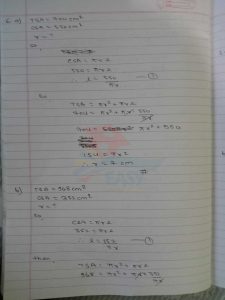 6. a) TSA = 704 cm²
CSA = 550 cm²
r = ?
So,
CSA = πrl
550 = πrl
∴ l = 550/πr — ①
So
TSA = πr² + πrl
704 = πr² + πr · 550/πr
704 = πr² + 550
154 = πr²
∴ r = 7 cm
b) TSA = 968 cm²
CSA = 352 cm²
r = ?
So,
CSA = πrl
352 = πrl
∴ l = 352/πr — ①
then,
TSA = πr² + πrl